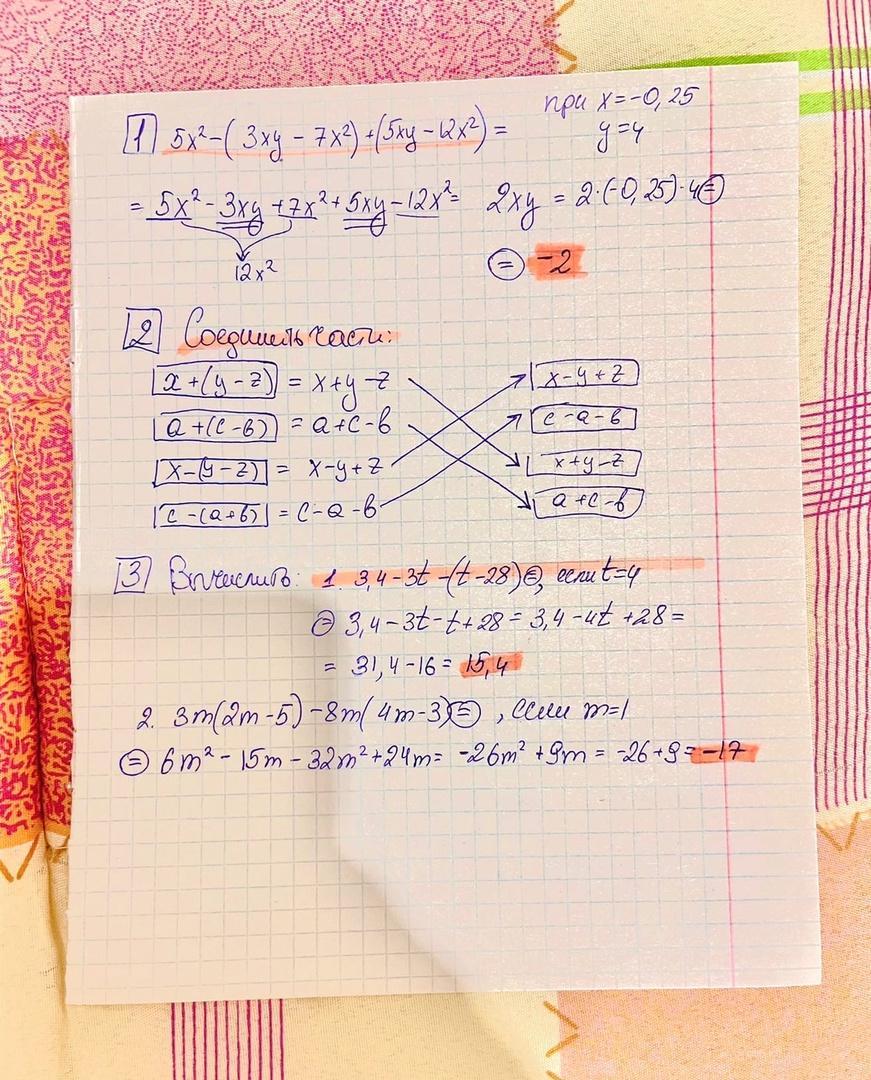 при x=-0,25
1 5x²-(3xy-7x²)+(5xy-12x²)=
y=4
= 5x²-3xy+7x²+5xy-12x²= 2xy = 2·(-0,25)·4=
12x²
= -2
2 Соединить части:
x+(y-z) = x+y-z x-y+z
a+(c-b) = a+c-b c-a-b
x-(y-z) = x-y+z x+y-z
c-(a+b) = c-a-b a+c-b
3 Вычислить: 1. 3,4-3t-(t-28)=, если t=4
= 3,4-3t-t+28=3,4-4t+28=
= 31,4-16=15,4
2. 3m(2m-5)-8m(4m-3)= , если m=1
= 6m²-15m-32m²+24m= -26m²+9m= -26+9=-17